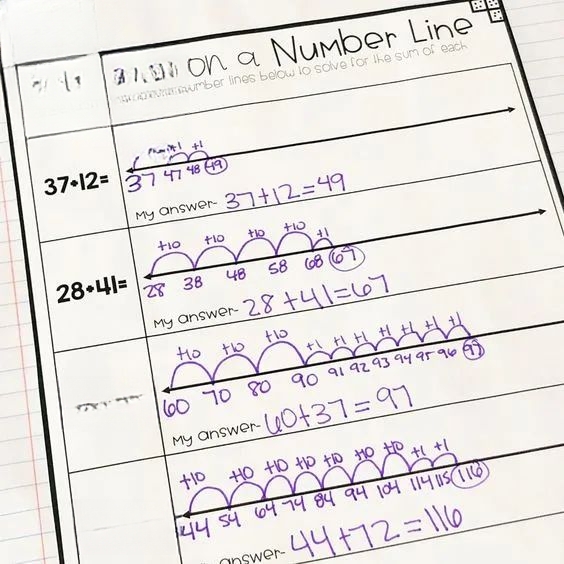 on a Number Line
number lines below to solve for the sum of each
+1 +1
37+12= 37 47 48 49
My answer- 37+12=49
+10 +10 +10 +10 +1
28+41= 28 38 48 58 68 67
My answer- 28+41=67
+10 +10 +10 +1 +1 +1 +1 +1 +1 +1
60 70 80 90 91 92 93 94 95 96 97
My answer- 60+37=97
+10 +10 +10 +10 +10 +10 +10 +1 +1
44 54 64 74 84 94 104 114 115 116
answer- 44+72=116